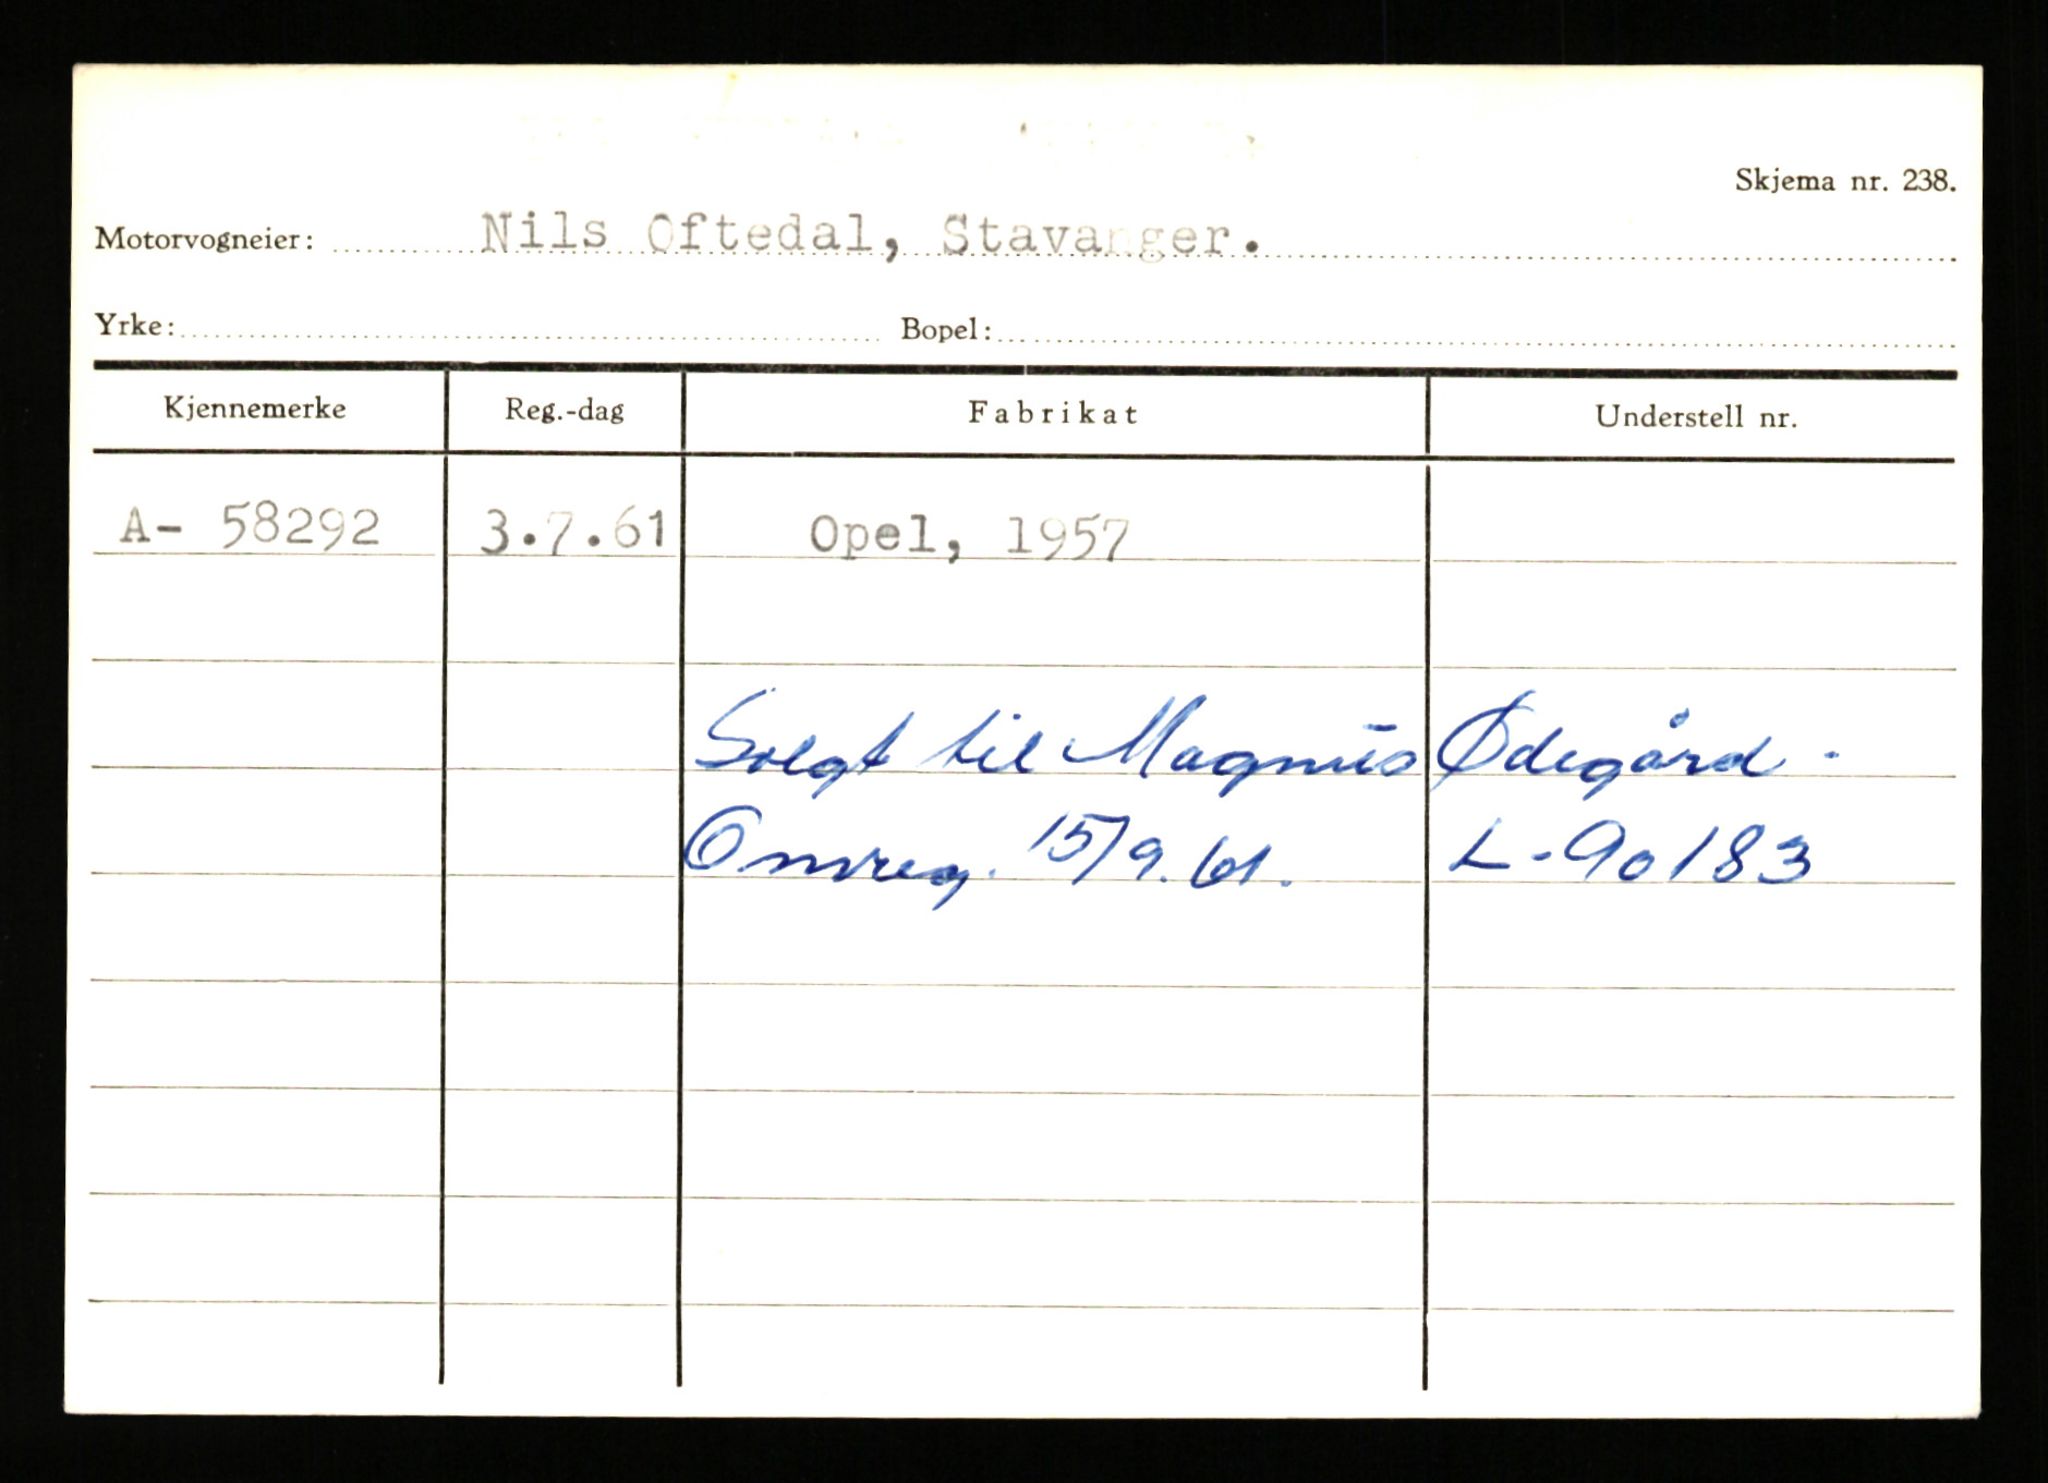 Skjema nr. 238.
Motorvogneier: Nils Oftedal, Stavanger.
Yrke: Bopel:
Kjennemerke Reg.-dag Fabrikat Understell nr.
A- 58292 3.7.61 Opel, 1957
Solgt til Magnus Ødegård -
Omreg. 15/9.61. L-90183